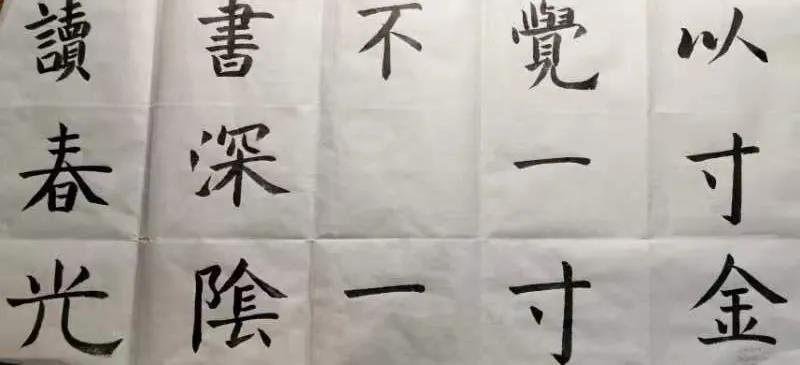 讀書不覺以
春深 一寸
光陰一寸金